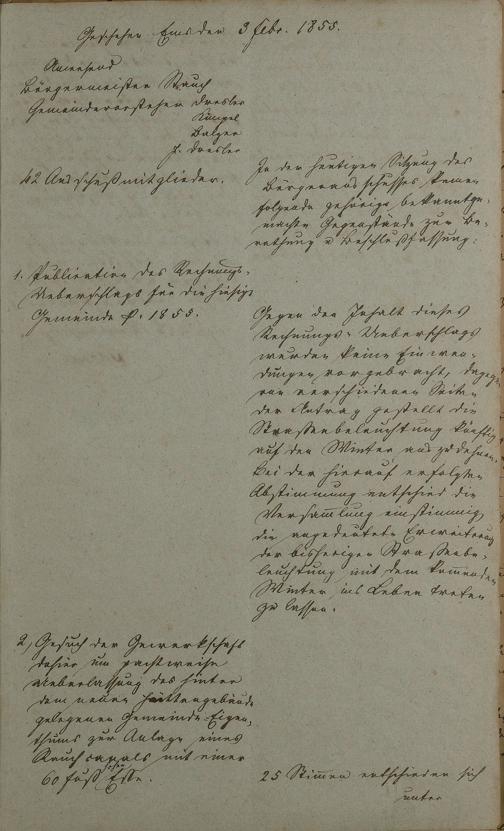 Geschehen Ems den 3 Febr. 1855.
Anwesend
Bürgermeister Stauch
Gemeindevorsteher Dresler
Kümpel
Balzer
J. Dresler
42 Ausschußmitglieder.
In der heutigen Sitzung des
Bürgerausschusses kamen
folgende gehörig bekanntge-
machte Gegenstände zur Be-
rathung u Beschlußfassung:
1. Publication des Rechnungs-
Ueberschlags für die hiesige
Gemeinde p. 1855.
Gegen den Inhalt dieses
Rechnungs-Ueberschlags
wurden keine Einwen-
dungen vorgebracht, dagegen
von verschiedenen Seiten
der Antrag gestellt die
Strassenbeleuchtung künftig
auf den Winter auszudehnen.
Bei der hierauf erfolgten
Abstimmung entschied die
Versammlung einstimmig,
die angedeutete Erweiterung
der bisherigen Strassenbe-
leuchtung mit dem kommenden
Winter ins Leben treten
zu lassen.
2, Gesuch der Gewerkschaft
dahier um pachtweise
Ueberlassung des hinter
dem neuen Hüttengebäude
gelegenen Gemeinde-Eigen-
thums zur Anlage eines
Rauchcanals mit einer
60 Fuß Esse.
25 Stimmen entschieden sich
unter